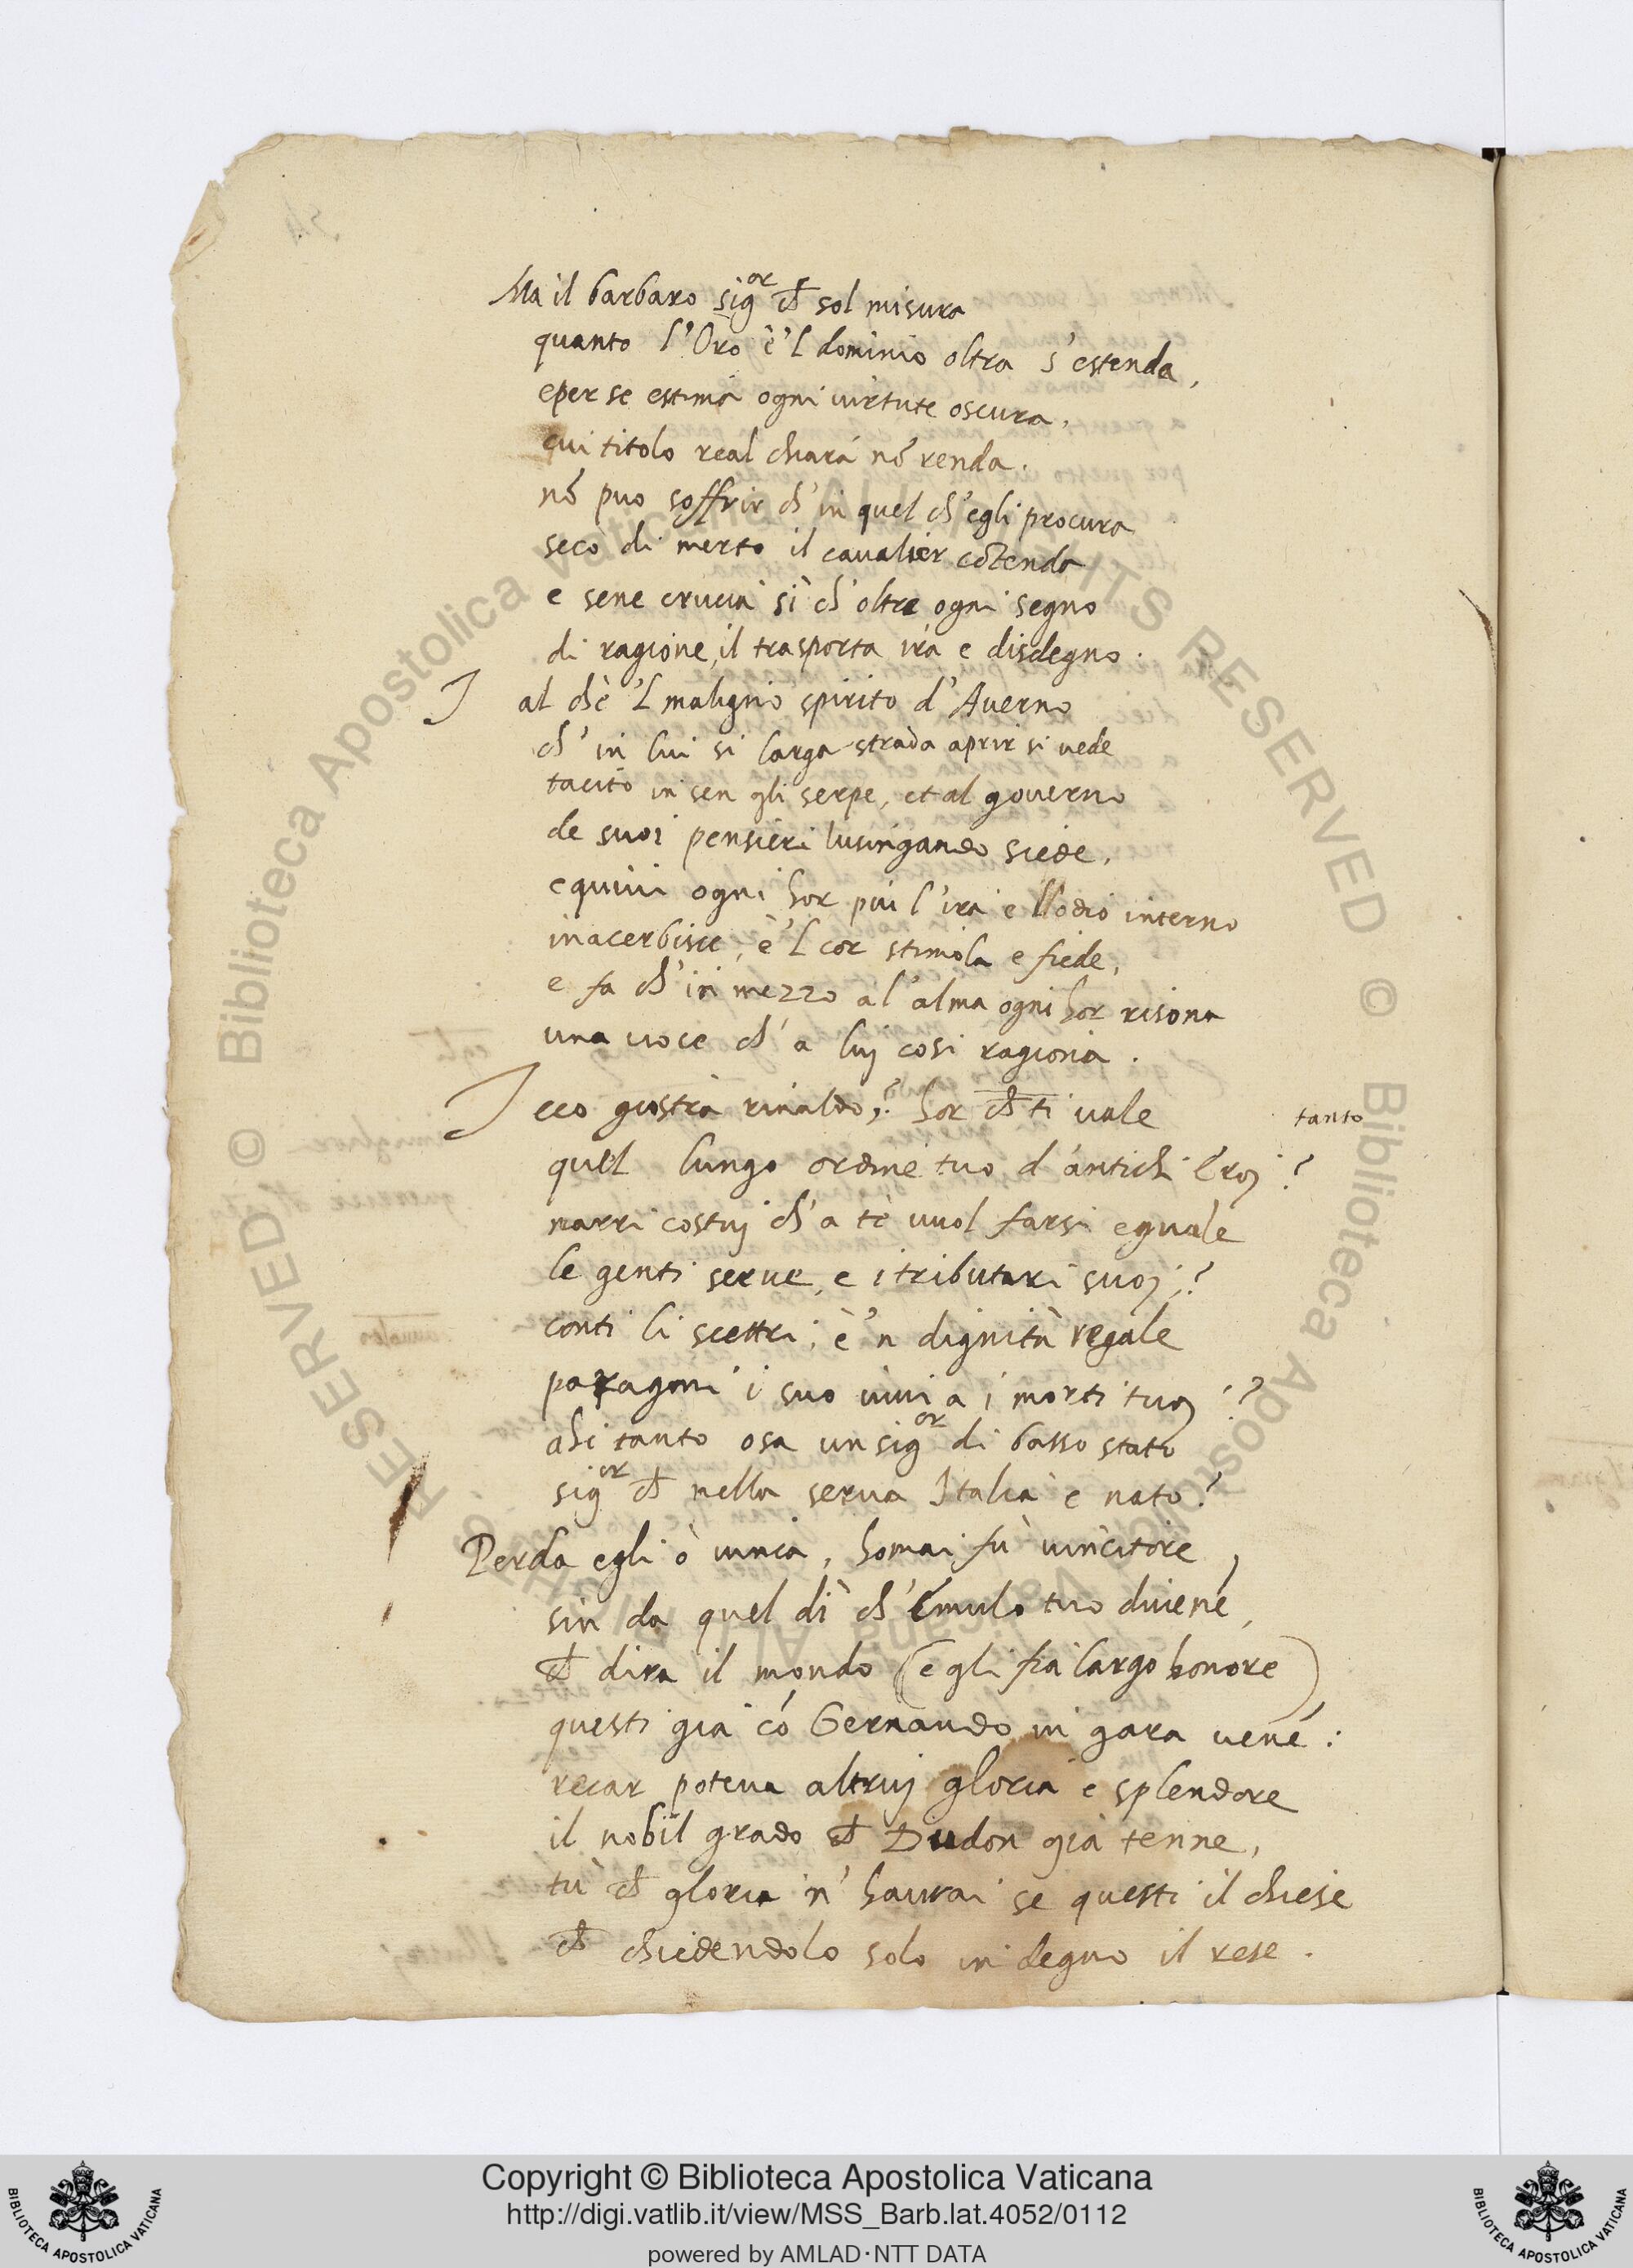 Ma il barbaro sig.or ch̃ sol misura
quanto l'Oro è 'l dominio oltra s'estenda,
e per se estima ogni uirtute oscura,
cui titolo real chiara nõ renda.
nõ puo soffrir ch'in quel ch'egli procura
seco di merto il caualier cõtenda
e sene crucia sì ch'oltre ogni segno
di ragione, il trasporta ira e disdegno.
Tal ch'è 'l maligno spirito d'Auerno
ch'in lui si larga strada aprir si uede
tacito in sen gli serpe, et al gouerno
de suoi pensieri lusingando siede,
e quiui ogni hor piu l'ira e llodio interno
inacerbisce, è 'l cor stimola e fiede,
e fa ch'in mezzo a l'alma ogni hor risona
una uoce ch'a luj cosi ragiona.
Teco giostra rinaldo,? hor ch̃ ti uale tanto
quel lungo ordine tuo d'antichi Eroj?
narri costuj ch'a te uuol farsi eguale
le genti serue, e i tributari suoj,?
conti li scettri, è 'n dignità regale
paragoni i suo uiui a i morti tuoj?
ahi tanto osa un sig.or di basso stato
sig.or ch̃ nella serua Italia è nato?
Perda egli ò uinca, homai fù uincitore
sin da quel dì ch'Emulo tuo diuene,
ch̃ dira il mondo (e gli fia largo honore)
questi gia cõ Gernando in gara uene:
recar poteua altruj gloria e splendore
il nobil grado ch̃ Dudon già tenne,
tù ch̃ gloria n'haurai se questi il chiese
ch̃ chiedendolo solo indegno il rese.
Copyright © Biblioteca Apostolica Vaticana
http://digi.vatlib.it/view/MSS_Barb.lat.4052/0112
powered by AMLAD·NTT DATA
BIBLIOTECA APOSTOLICA VATICANA
BIBLIOTECA APOSTOLICA VATICANA